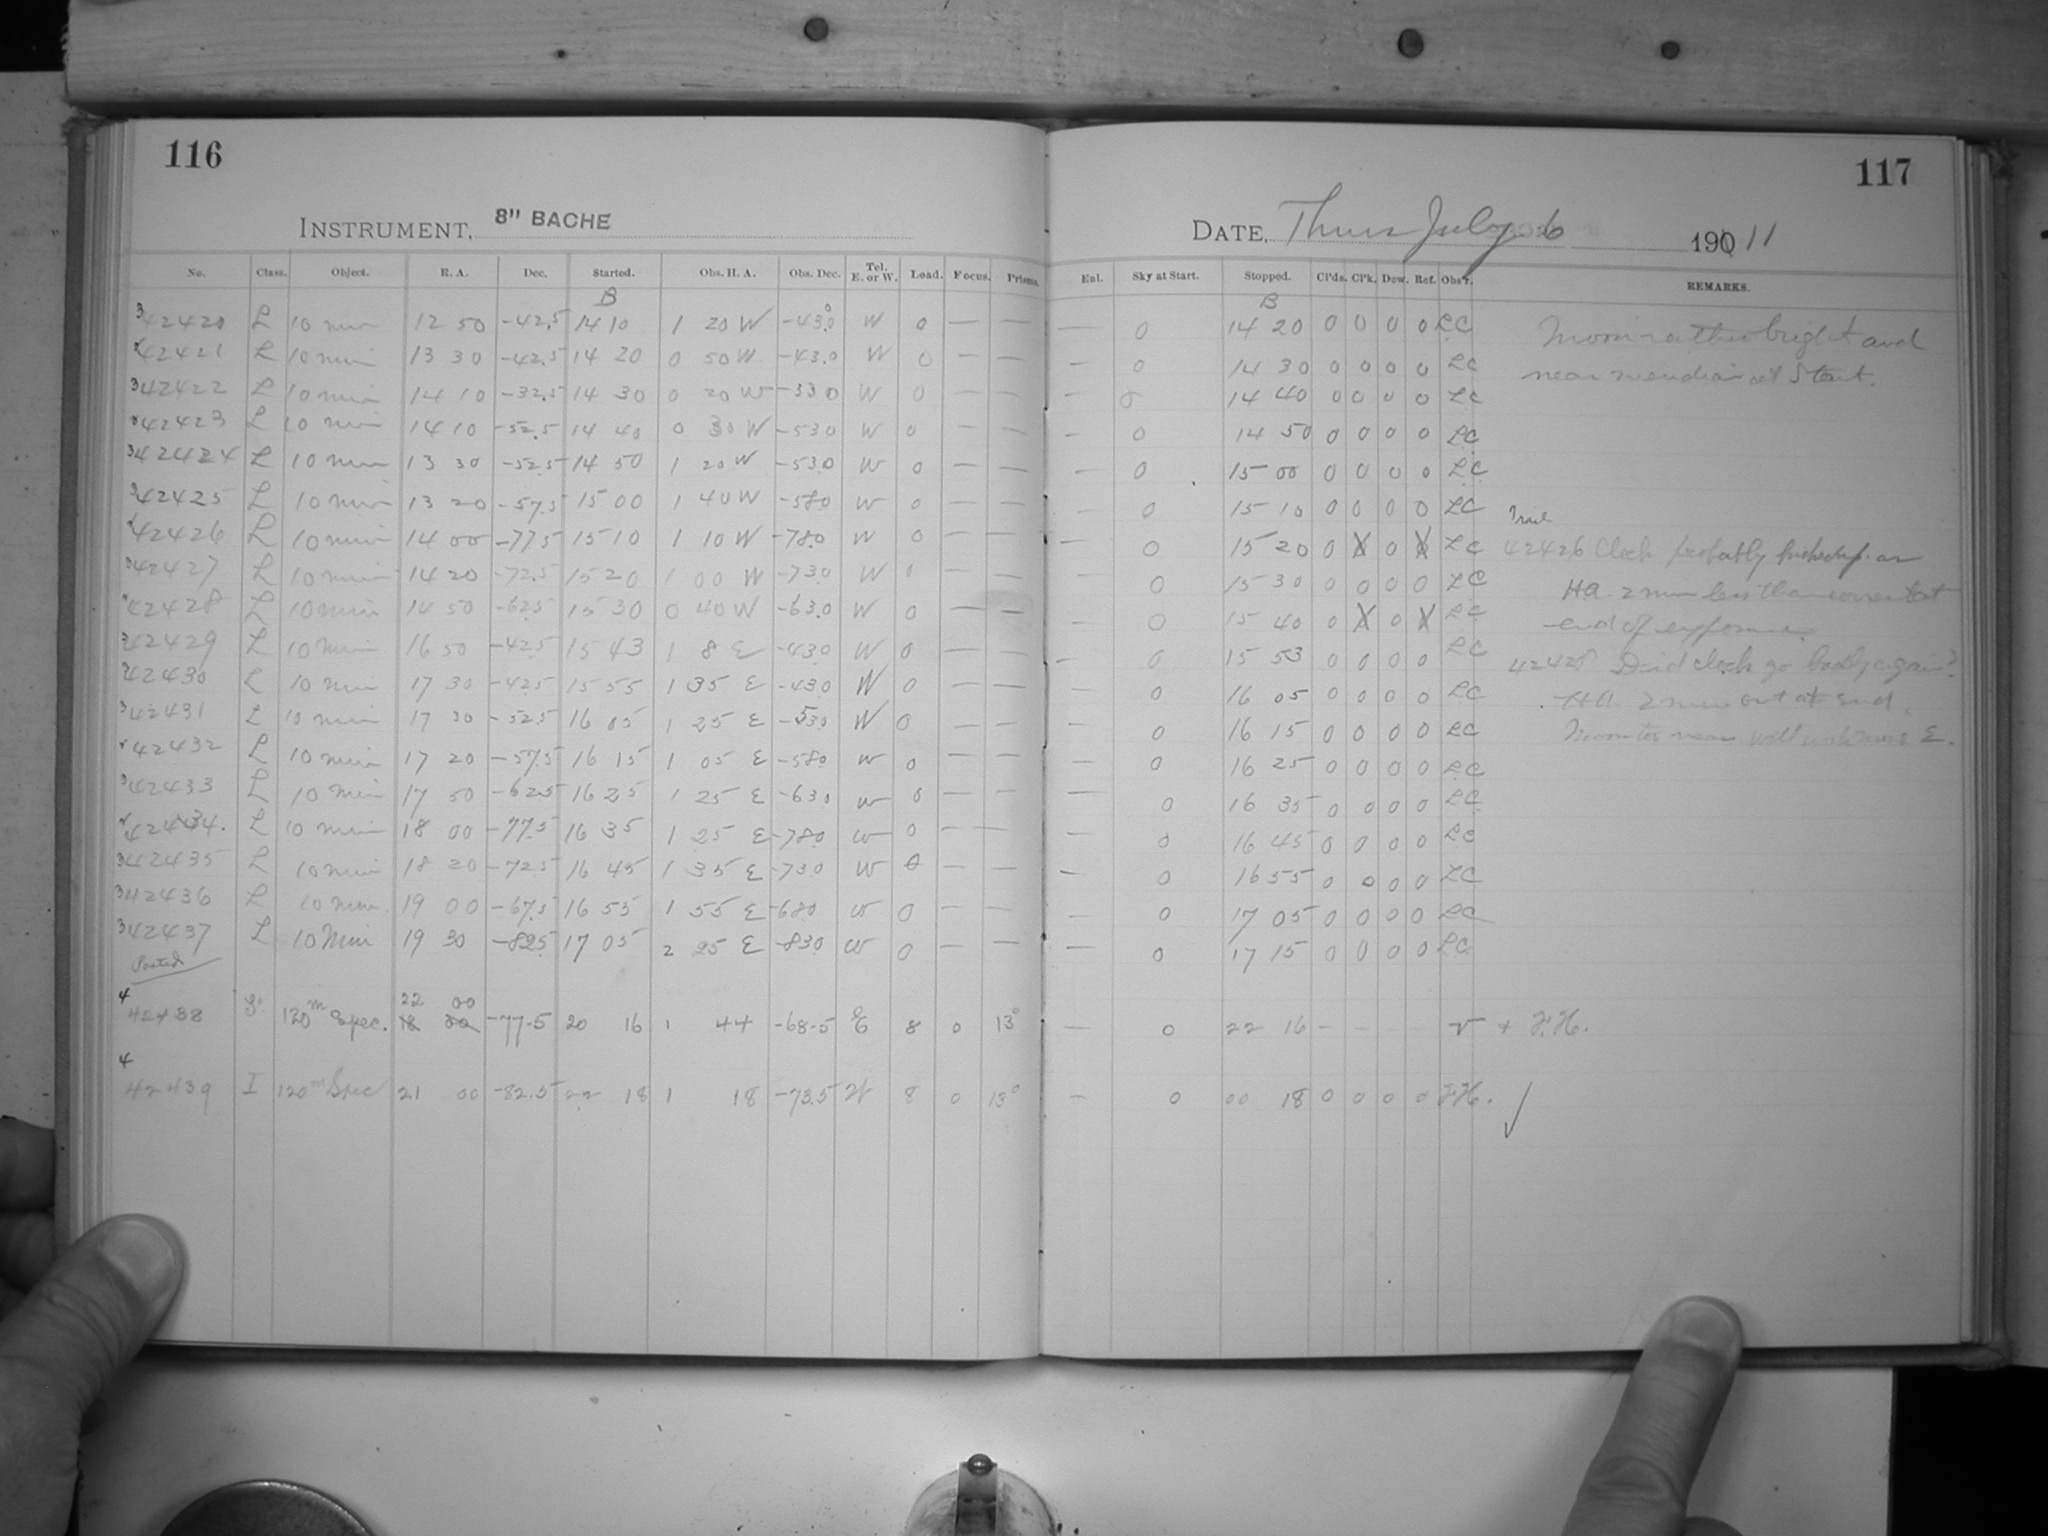 116
INSTRUMENT, 8" BACHE
No. Class. Object. R. A. Dec. Started. Obs. H. A. Obs. Dec. Tel. E. or W. Load. Focus. Prisms.
B
3 42420 L 10 min 12 50 -42.5 14 10 1 20 W -43.0 W 0 — —
42421 L 10 min 13 30 -42.5 14 20 0 50 W -43.0 W 0 — —
3 42422 L 10 min 14 10 -32.5 14 30 0 20 W -33.0 W 0 — —
42423 L 10 min 14 10 -52.5 14 40 0 30 W -53.0 W 0 — —
3 42424 L 10 min 13 30 -52.5 14 50 1 20 W -53.0 W 0 — —
3 42425 L 10 min 13 20 -57.5 15 00 1 40 W -58.0 W 0 — —
42426 L 10 min 14 00 -77.5 15 10 1 10 W -78.0 W 0 — —
42427 L 10 min 14 20 -72.5 15 20 1 00 W -73.0 W 0 — —
42428 L 10 min 14 50 -62.5 15 30 0 40 W -63.0 W 0 — —
42429 L 10 min 16 50 -42.5 15 43 1 8 E -43.0 W 0 — —
42430 L 10 min 17 30 -42.5 15 55 1 35 E -43.0 W 0 — —
3 42431 L 10 min 17 30 -52.5 16 05 1 25 E -53.0 W 0 — —
42432 L 10 min 17 20 -57.5 16 15 1 05 E -58.0 W 0 — —
3 42433 L 10 min 17 50 -62.5 16 25 1 25 E -63.0 W 0 — —
42434. L 10 min 18 00 -77.5 16 35 1 25 E -78.0 W 0 — —
3 42435 L 10 min 18 20 -72.5 16 45 1 35 E -73.0 W 0 — —
3 42436 L 10 min 19 00 -67.5 16 55 1 55 E -68.0 W 0 — —
3 42437 L 10 min 19 30 -82.5 17 05 2 25 E -83.0 W 0 — —
Posted
22 00
4 42438 120m Spec. 18 00 -77.5 20 16 1 44 -68.5 E 8 0 13°
4 42439 I 120m Spec 21 00 -82.5 22 18 1 18 -73.5 W 8 0 13°
117
DATE, Thurs July 6 190 11
Enl. Sky at Start. Stopped. Cl'ds. Cl'k. Dew. Ref. Obs'r. REMARKS.
B
— 0 14 20 0 0 0 0 LC Moon rather bright and
— 0 14 30 0 0 0 0 LC near meridian at Start.
— 0 14 40 0 0 0 0 LC
— 0 14 50 0 0 0 0 LC
— 0 15 00 0 0 0 0 LC
— 0 15 10 0 0 0 0 LC
— 0 15 20 0 X 0 X LC 42426 Clock probably
— 0 15 30 0 0 0 0 LC HA. 2 min less than correct at
— 0 15 40 0 X 0 X LC end of exposure.
— 0 15 53 0 0 0 0 LC 42428 Did clock go badly again?
— 0 16 05 0 0 0 0 LC HA 2 min out at end.
— 0 16 15 0 0 0 0 LC Moon too near will work more E.
— 0 16 25 0 0 0 0 LC
— 0 16 35 0 0 0 0 LC
— 0 16 45 0 0 0 0 LC
— 0 16 55 0 0 0 0 LC
— 0 17 05 0 0 0 0 LC
— 0 17 15 0 0 0 0 LC
— 0 22 16 — — — V + F.H.
— 0 00 18 0 0 0 0 F.H. ✓